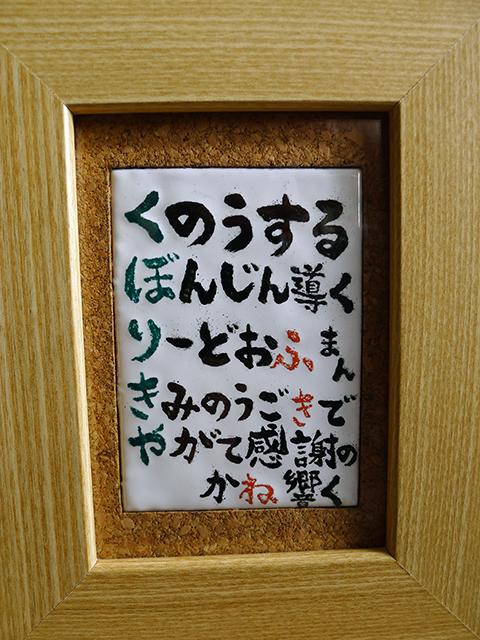 くのうする
ぼんじん導く
りーどおふまん
きみのうごきで
やがて感謝の
かね響く